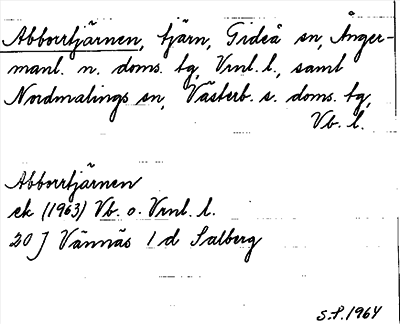 Abborrtjärnen, tjärn, Gideå sn, Ånger-
manl. n. doms. tg, Vrnl. l., samt
Nordmalings sn, Västerb. s. doms. tg,
Vb. l.
Abborrtjärnen
ek (1963) Vb. o. Vrnl. l.
20 J Vännäs 1 d Salberg
S.P. 1964